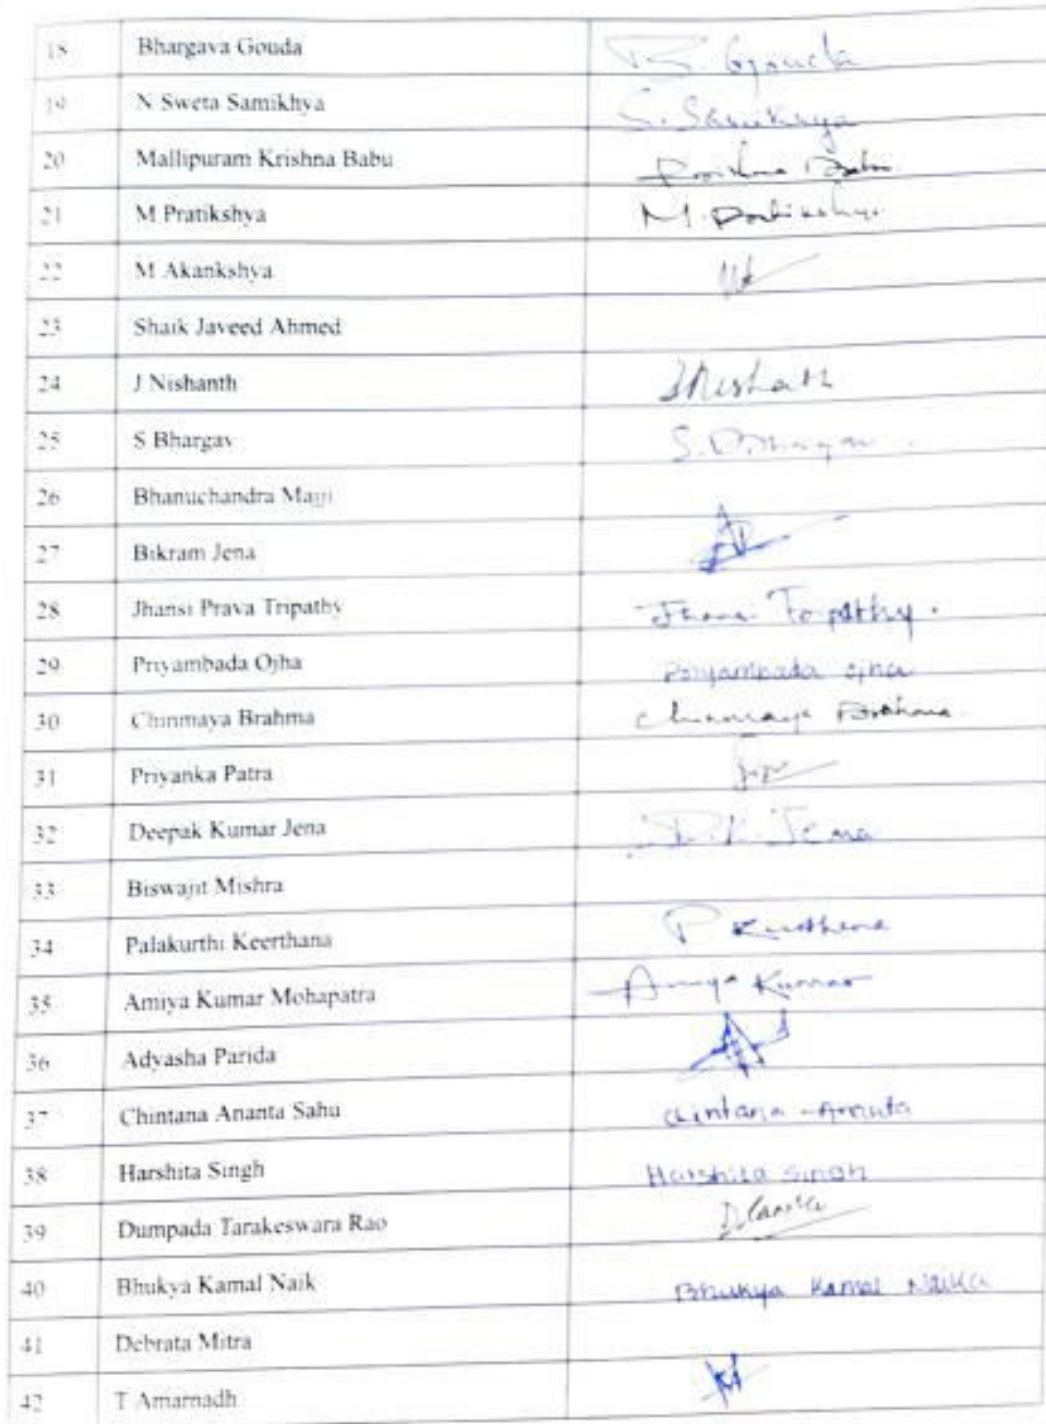 18 Bhargava Gouda B. Gouda
19 N Sweta Samikhya S. Samikhya
20 Mallipuram Krishna Babu Krishna Babu
21 M Pratikshya M. Pratikshya
22 M Akankshya
23 Shaik Javeed Ahmed
24 J Nishanth
25 S Bhargav
26 Bhanuchandra Majji
27 Bikram Jena
28 Jhansi Prava Tripathy Jhansi Tripathy.
29 Priyambada Ojha Priyambada Ojha
30 Chinmaya Brahma Chinmaya Brahma
31 Priyanka Patra
32 Deepak Kumar Jena D. K. Jena
33 Biswajit Mishra
34 Palakurthi Keerthana P Keerthana
35 Amiya Kumar Mohapatra Amiya Kumar
36 Adyasha Parida
37 Chintana Ananta Sahu Chintana Ananta
38 Harshita Singh Harshita Singh
39 Dumpada Tarakeswara Rao
40 Bhukya Kamal Naik Bhukya Kamal Naika
41 Debrata Mitra
42 T Amarnadh